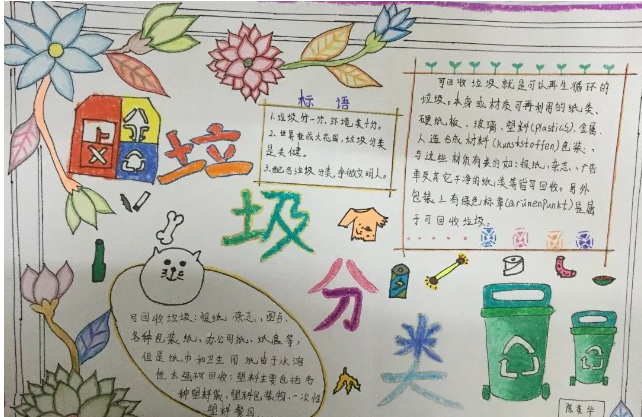 标语
1.垃圾分一分,环境美十分。
2.世界要成大花园,垃圾分类
是关健。
3.配合垃圾分类,争做文明人。
可回收垃圾就是可以再生循环的
垃圾。本身或材质可再利用的纸类、
硬纸板、玻璃、塑料(plastics)、金属、
人造合成材料(Kunststoffen)包装、
与这些材质有关的如:报纸、杂志、广告
单及其它干净的纸类等皆可回收。另外
包装上有绿色标章(arünenpunkt)是属
于可回收垃圾。
垃
圾
分
类
可回收垃圾:报纸、杂志、图书、
各种包装纸、办公用纸、纸盒等,
但是纸巾和卫生用纸由于水溶
性太强不可回收;塑料主要包括各
种塑料袋、塑料包装物、一次性
塑料餐具